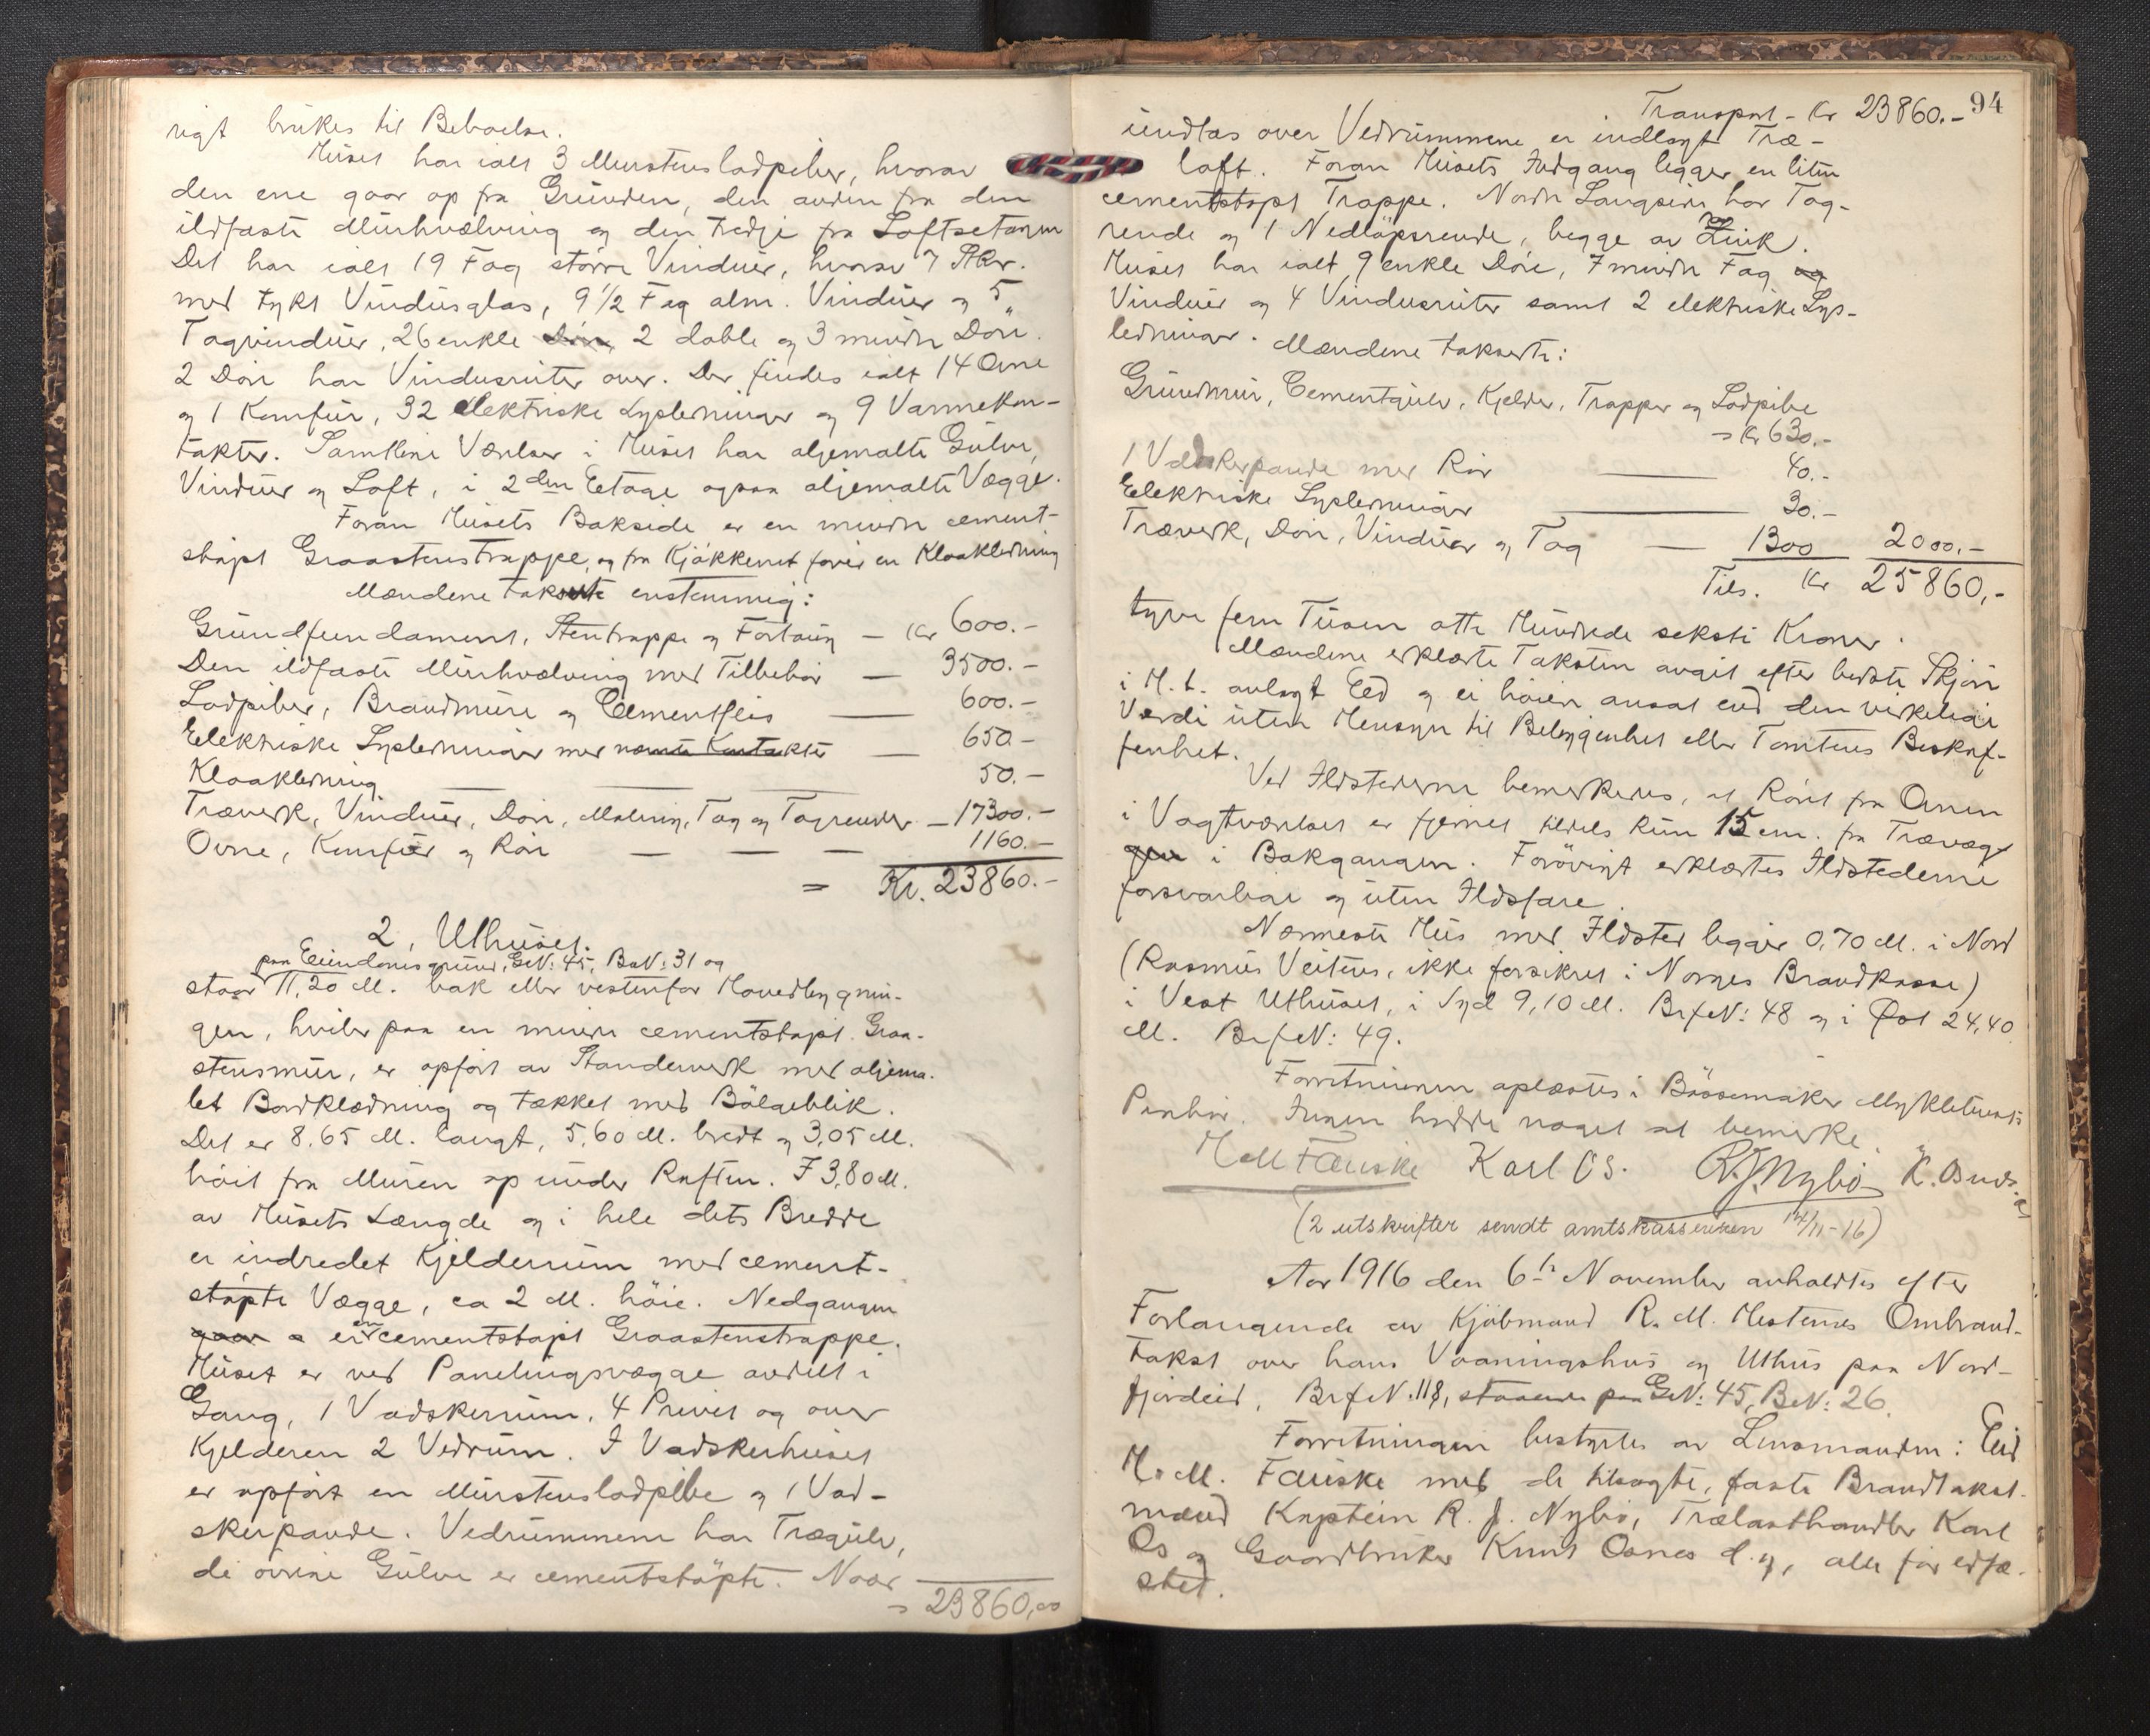 rigt brukes til Beboelse.
Huset har ialt 3 Murstensladpiber, hvorav
den ene gaar op fra Grunden, den anden fra den
ildfaste Murhvælving og den tredje fra Loftsetagen
Det har ialt 19 Fag större Vinduer, hvorav 7 Stkr.
med tykt Vindusglas, 9 1/2 Fag alm. Vinduer og 5
Tagvinduer, 26 enkle Döre, 2 doble og 3 mindre Döre.
2 Döre har Vindusruiter over. Der findes ialt 14 Ovne
og 1 Komfur, 32 elektriske Lysledninger og 9 Varmekon-
takter. Samtlige Værelser i Huset har oljemalte Gulve,
Vinduer og Loft, i 2den Etage ogsaa oljemalte Vægge.
Foran Husets Bakside er en mindre cement-
støpt Graastenstrappe, og fra Kjøkkenet fører en Kloakledning
Mændene takserte enstemmig:
Grundfundament, Stentrappe og Fortaug — Kr 600.-
Den ildfaste Murhvælving med Tilbehør — 3500.-
Ladpiber, Brandmure og Cementflis — 600.-
Elektriske Lysledninger med nævnte Kontakter — 650.-
Kloakledning — 50.-
Træverk, Vinduer, Döre, Maling, Tag og Tagrender — 17300.-
Ovne, Komfur og Rör — — — 1160.-
= Kr. 23860.-
2, Uthuset.
paa Eiendomsgrund, G.N: 45, B.N: 31 og
staar 11,20 M. bak eller vestenfor Hovedbygnin-
gen, hviler paa en mindre cementstøpt Graa-
stensmur, er opført av Standerverk med oljema-
let Bordklædning og tækket med Bölgeblik.
Det er 8,65 M. langt, 5,60 M. bredt og 3,05 M.
höit fra Muren op under Raften. I 3,80 M.
av Husets Længde og i hele dets Bredde
er indredet Kjelderrum med cement-
støpte Vægge, ca 2 M. höie. Nedgangen
gaar a er en cementstøpt Graastenstrappe.
Huset er ved Panelingsvægge avdelt i
Gang, 1 Vadskerum, 4 Priveter og over
Kjelderen 2 Vedrum. I Vadskerhuset
er opført en Murstensladpibe og 1 Vad-
skerpande. Vedrummene har Trægulv,
de övrige Gulve er cementstöpte. Noor
= 23860,00
Transport - Kr 23860.- 94
undtas over Vedrummene er indlagt Træ-
loft. Foran Husets Indgang ligger en liten
cementstøpt Trappe. Nordre Langside har Tag-
rende og 1 Nedløpsrende, begge av Zink.
Huset har ialt 9 enkle Döre, 7 mindre Fag og
Vinduer og 4 Vindusruiter samt 2 elektriske Lys-
ledninger. Mændene takserte:
Grundmur, Cementgulv, Kjelder, Trapper og Ladpibe
= Kr 630.-
1 Vadskerpande med Rör — 40.-
Elektriske Lysledninger — 30.-
Træverk, Döre, Vinduer og Tag — 1300 2000.-
Tils. Kr 25860,-
tyve fem Tusen otte Hundrede seksti Kroner.
Mændene erklærte Taksten avgit efter bedste Skjön
i H. t. avlagt Eed og ei høiere ansat end den virkelige
Verdi uten Hensyn til Beliggenhet eller Tomtens Beskaf-
fenhet.
Ved Ildstederne bemerkedes, at Röret fra Ovnen
i Vagtværelset er fjernet tildels kun 15 cm. fra Trævæg-
gen i Bakgangen. Forövrigt erklærtes Ildstederne
forsvarlige og uten Ildsfare.
Nærmeste Hus med Ildsted ligger 0,70 M. i Nord
(Rasmus Veiteus, ikke forsikret i Norges Brandkasse)
i Vest Uthuset, i Syd 9,10 M. Brf.N: 48 og i Øst 24,40
M. Brf.N: 49.
Forretningen oplæstes i Bössemaker Mykletuns
Paahör. Ingen hadde noget at bemerke.
H M Fauske Karl Os. R.J. Nybö K. Osnes
(2 utskrifter sendt amtskassereren 14/11-16)
Aar 1916 den 6te November avholdtes efter
Forlangende av Kjöbmand R. M. Hestenes Ombrand-
takst over hans Vaaningshus og Uthus paa Nord-
fjordeid, Brf.N. 118, staaende paa G.N: 45, B.N: 26.
Forretningen bestyrtes av Lensmanden i Eid
H. M. Fauske med de tilsagte, faste Brandtakst-
mænd Kaptein R. J. Nybö, Trælasthandler Karl
Os og Gaardbruker Knut Osnes d.y, alle før edfæ-
stet.